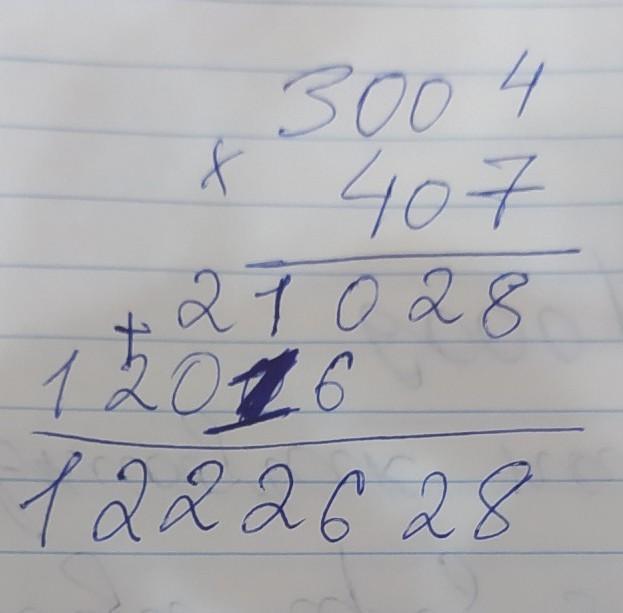 3004
× 407
21028
+
12016
1222628